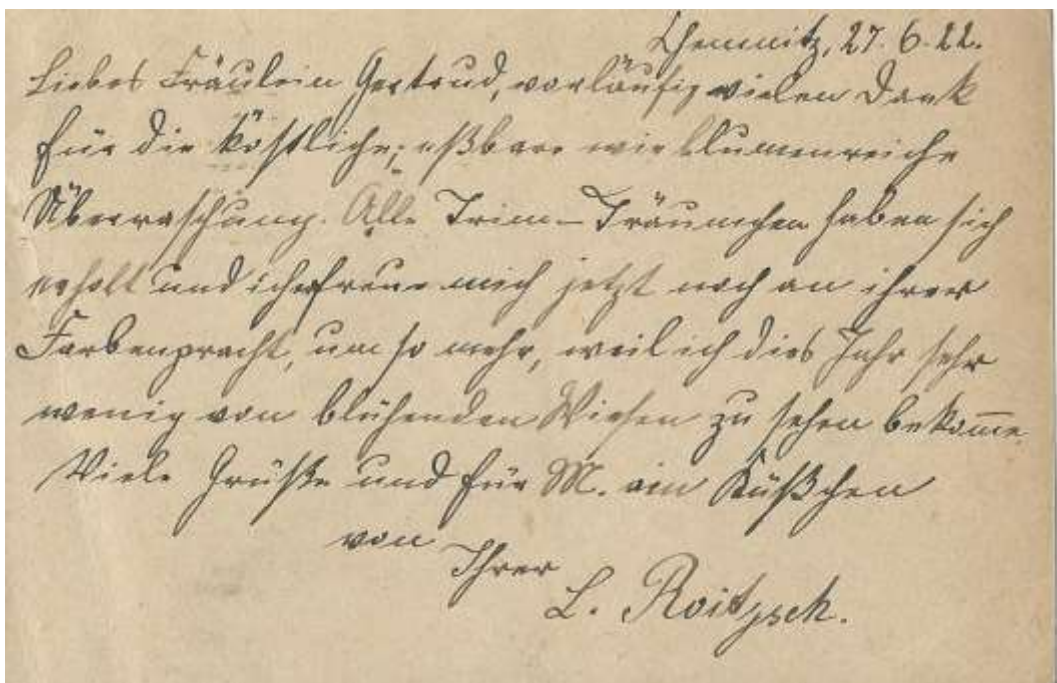 Chemnitz, 27. 6. 22.
Liebes Fräulein Gertrud, vorläufig vielen Dank
für die köstliche, eßbare wie blumenreiche
Überraschung. Alle haben sich
erholt und ich freue mich jetzt noch an ihrer
Farbenpracht, um so mehr, weil ich dies Jahr sehr
wenig von blühenden Wiesen zu sehen bekomme.
Viele Grüße und für M. ein Küßchen
von
Ihrer
L. Roitzsch.